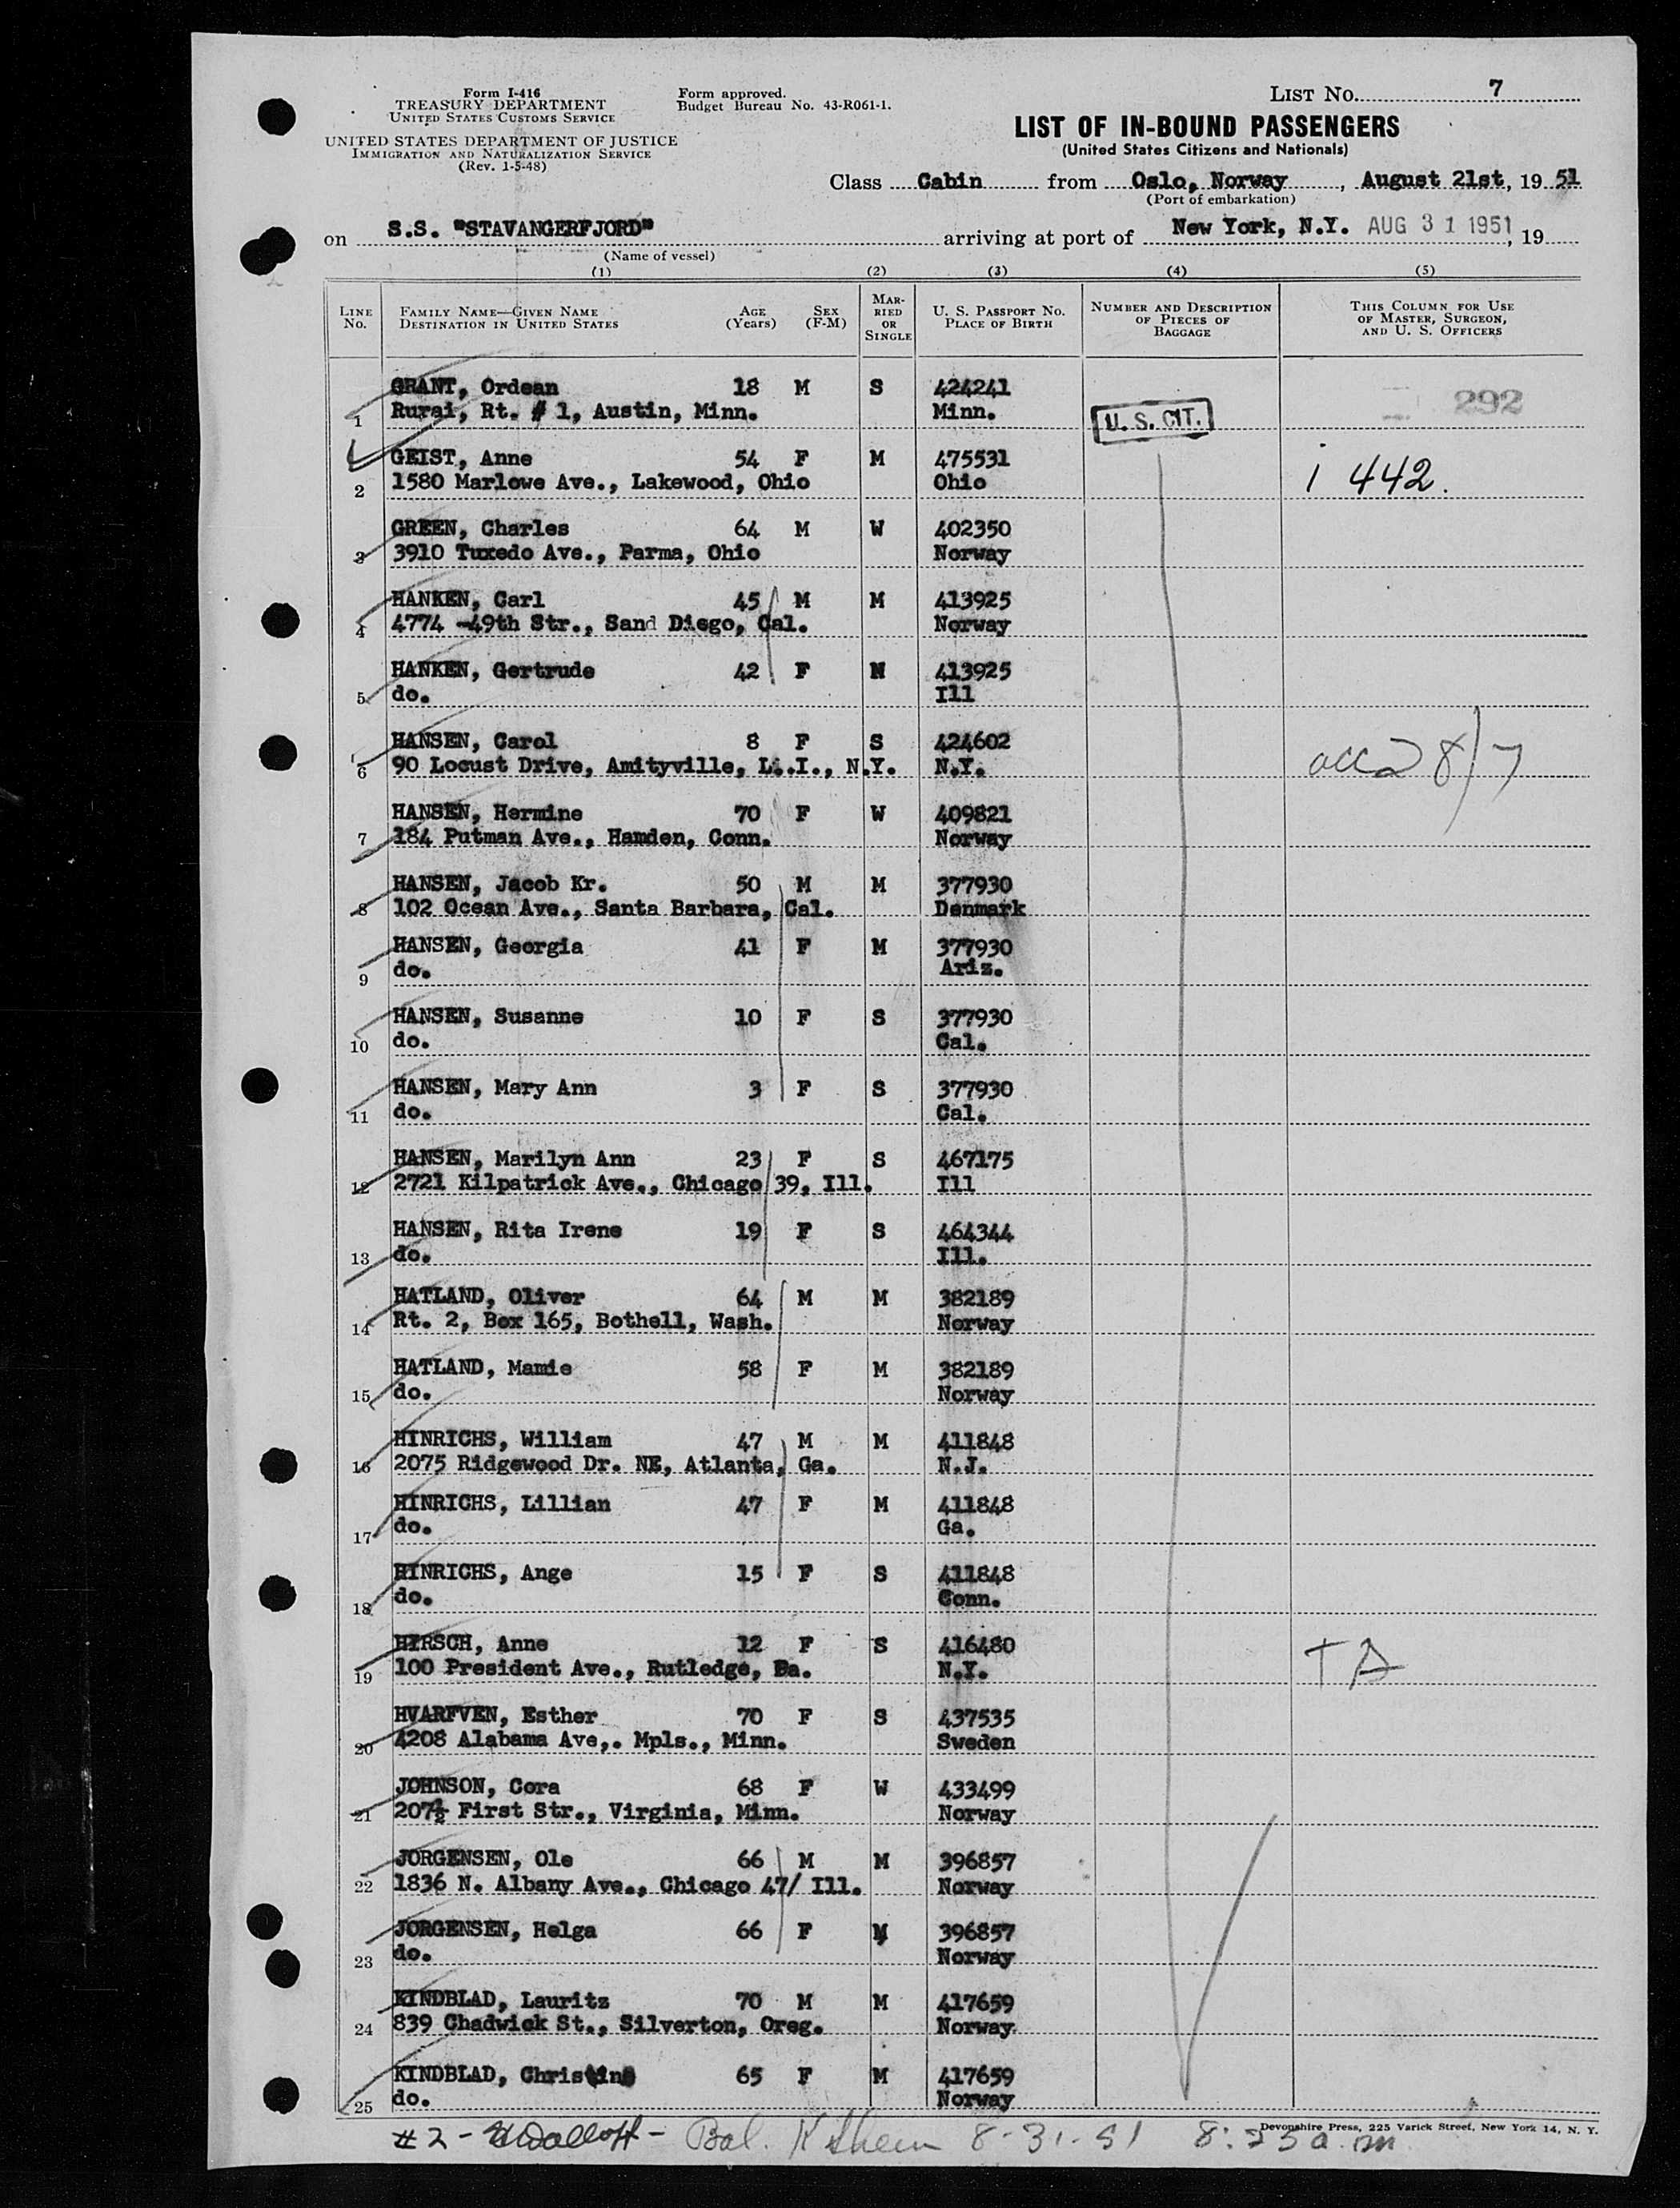 Form I-416
TREASURY DEPARTMENT
UNITED STATES CUSTOMS SERVICE
UNITED STATES DEPARTMENT OF JUSTICE
IMMIGRATION AND NATURALIZATION SERVICE
(Rev. 1-5-48)
Form approved.
Budget Bureau No. 43-R061-1.
LIST NO. 7
LIST OF IN-BOUND PASSENGERS
(United States Citizens and Nationals)
Class Cabin from Oslo, Norway, August 21st, 19 51
(Port of embarkation)
on S.S. "STAVANGERFJORD" arriving at port of New York, N.Y. AUG 31 1951, 19
(Name of vessel)
(1) (2) (3) (4) (5)
LINE NO. FAMILY NAME—GIVEN NAME DESTINATION IN UNITED STATES AGE (Years) SEX (F-M) MARRIED OR SINGLE U. S. PASSPORT NO. PLACE OF BIRTH NUMBER AND DESCRIPTION OF PIECES OF BAGGAGE THIS COLUMN FOR USE OF MASTER, SURGEON, AND U. S. OFFICERS
GRANT, Ordean 18 M S 424241 292
1 Rural, Rt. # 1, Austin, Minn. Minn. U. S. CIT.
GEIST, Anne 54 F M 475531
2 1580 Marlowe Ave., Lakewood, Ohio Ohio i 442.
GREEN, Charles 64 M W 402350
3 3910 Tuxedo Ave., Parma, Ohio Norway
HANKEN, Carl 45 M M 413925
4 4774 -49th Str., Sand Diego, Cal. Norway
HANKEN, Gertrude 42 F M 413925
5 do. Ill
HANSEN, Carol 8 F S 424602
6 90 Locust Drive, Amityville, L.I., N.Y. N.Y. 8/7
HANSEN, Hermine 70 F W 409821
7 184 Putman Ave., Hamden, Conn. Norway
HANSEN, Jacob Kr. 50 M M 377930
8 102 Ocean Ave., Santa Barbara, Cal. Denmark
HANSEN, Georgia 41 F M 377930
9 do. Ariz.
HANSEN, Susanne 10 F S 377930
10 do. Cal.
HANSEN, Mary Ann 3 F S 377930
11 do. Cal.
HANSEN, Marilyn Ann 23 F S 467175
12 2721 Kilpatrick Ave., Chicago 39, Ill. Ill
HANSEN, Rita Irene 19 F S 464344
13 do. Ill.
HATLAND, Oliver 64 M M 382189
14 Rt. 2, Box 165, Bothell, Wash. Norway
HATLAND, Mamie 58 F M 382189
15 do. Norway
HINRICHS, William 47 M M 411848
16 2075 Ridgewood Dr. NE, Atlanta, Ga. N.J.
HINRICHS, Lillian 47 F M 411848
17 do. Ga.
HINRICHS, Ange 15 F S 411848
18 do. Conn.
HIRSCH, Anne 12 F S 416480
19 100 President Ave., Rutledge, Pa. N.Y. TA
HVARFVEN, Esther 70 F S 437535
20 4208 Alabama Ave,. Mpls., Minn. Sweden
JOHNSON, Cora 68 F W 433499
21 207½ First Str., Virginia, Minn. Norway
JORGENSEN, Ole 66 M M 396857
22 1836 N. Albany Ave., Chicago 47/ Ill. Norway
JORGENSEN, Helga 66 F M 396857
23 do. Norway
KINDBLAD, Lauritz 70 M M 417659
24 839 Chadwick St., Silverton, Oreg. Norway
KINDBLAD, Christine 65 F M 417659
25 do. Norway
Devonshire Press, 225 Varick Street, New York 14, N. Y.
#2 - Bal. 8-31-51 8:25 a.m